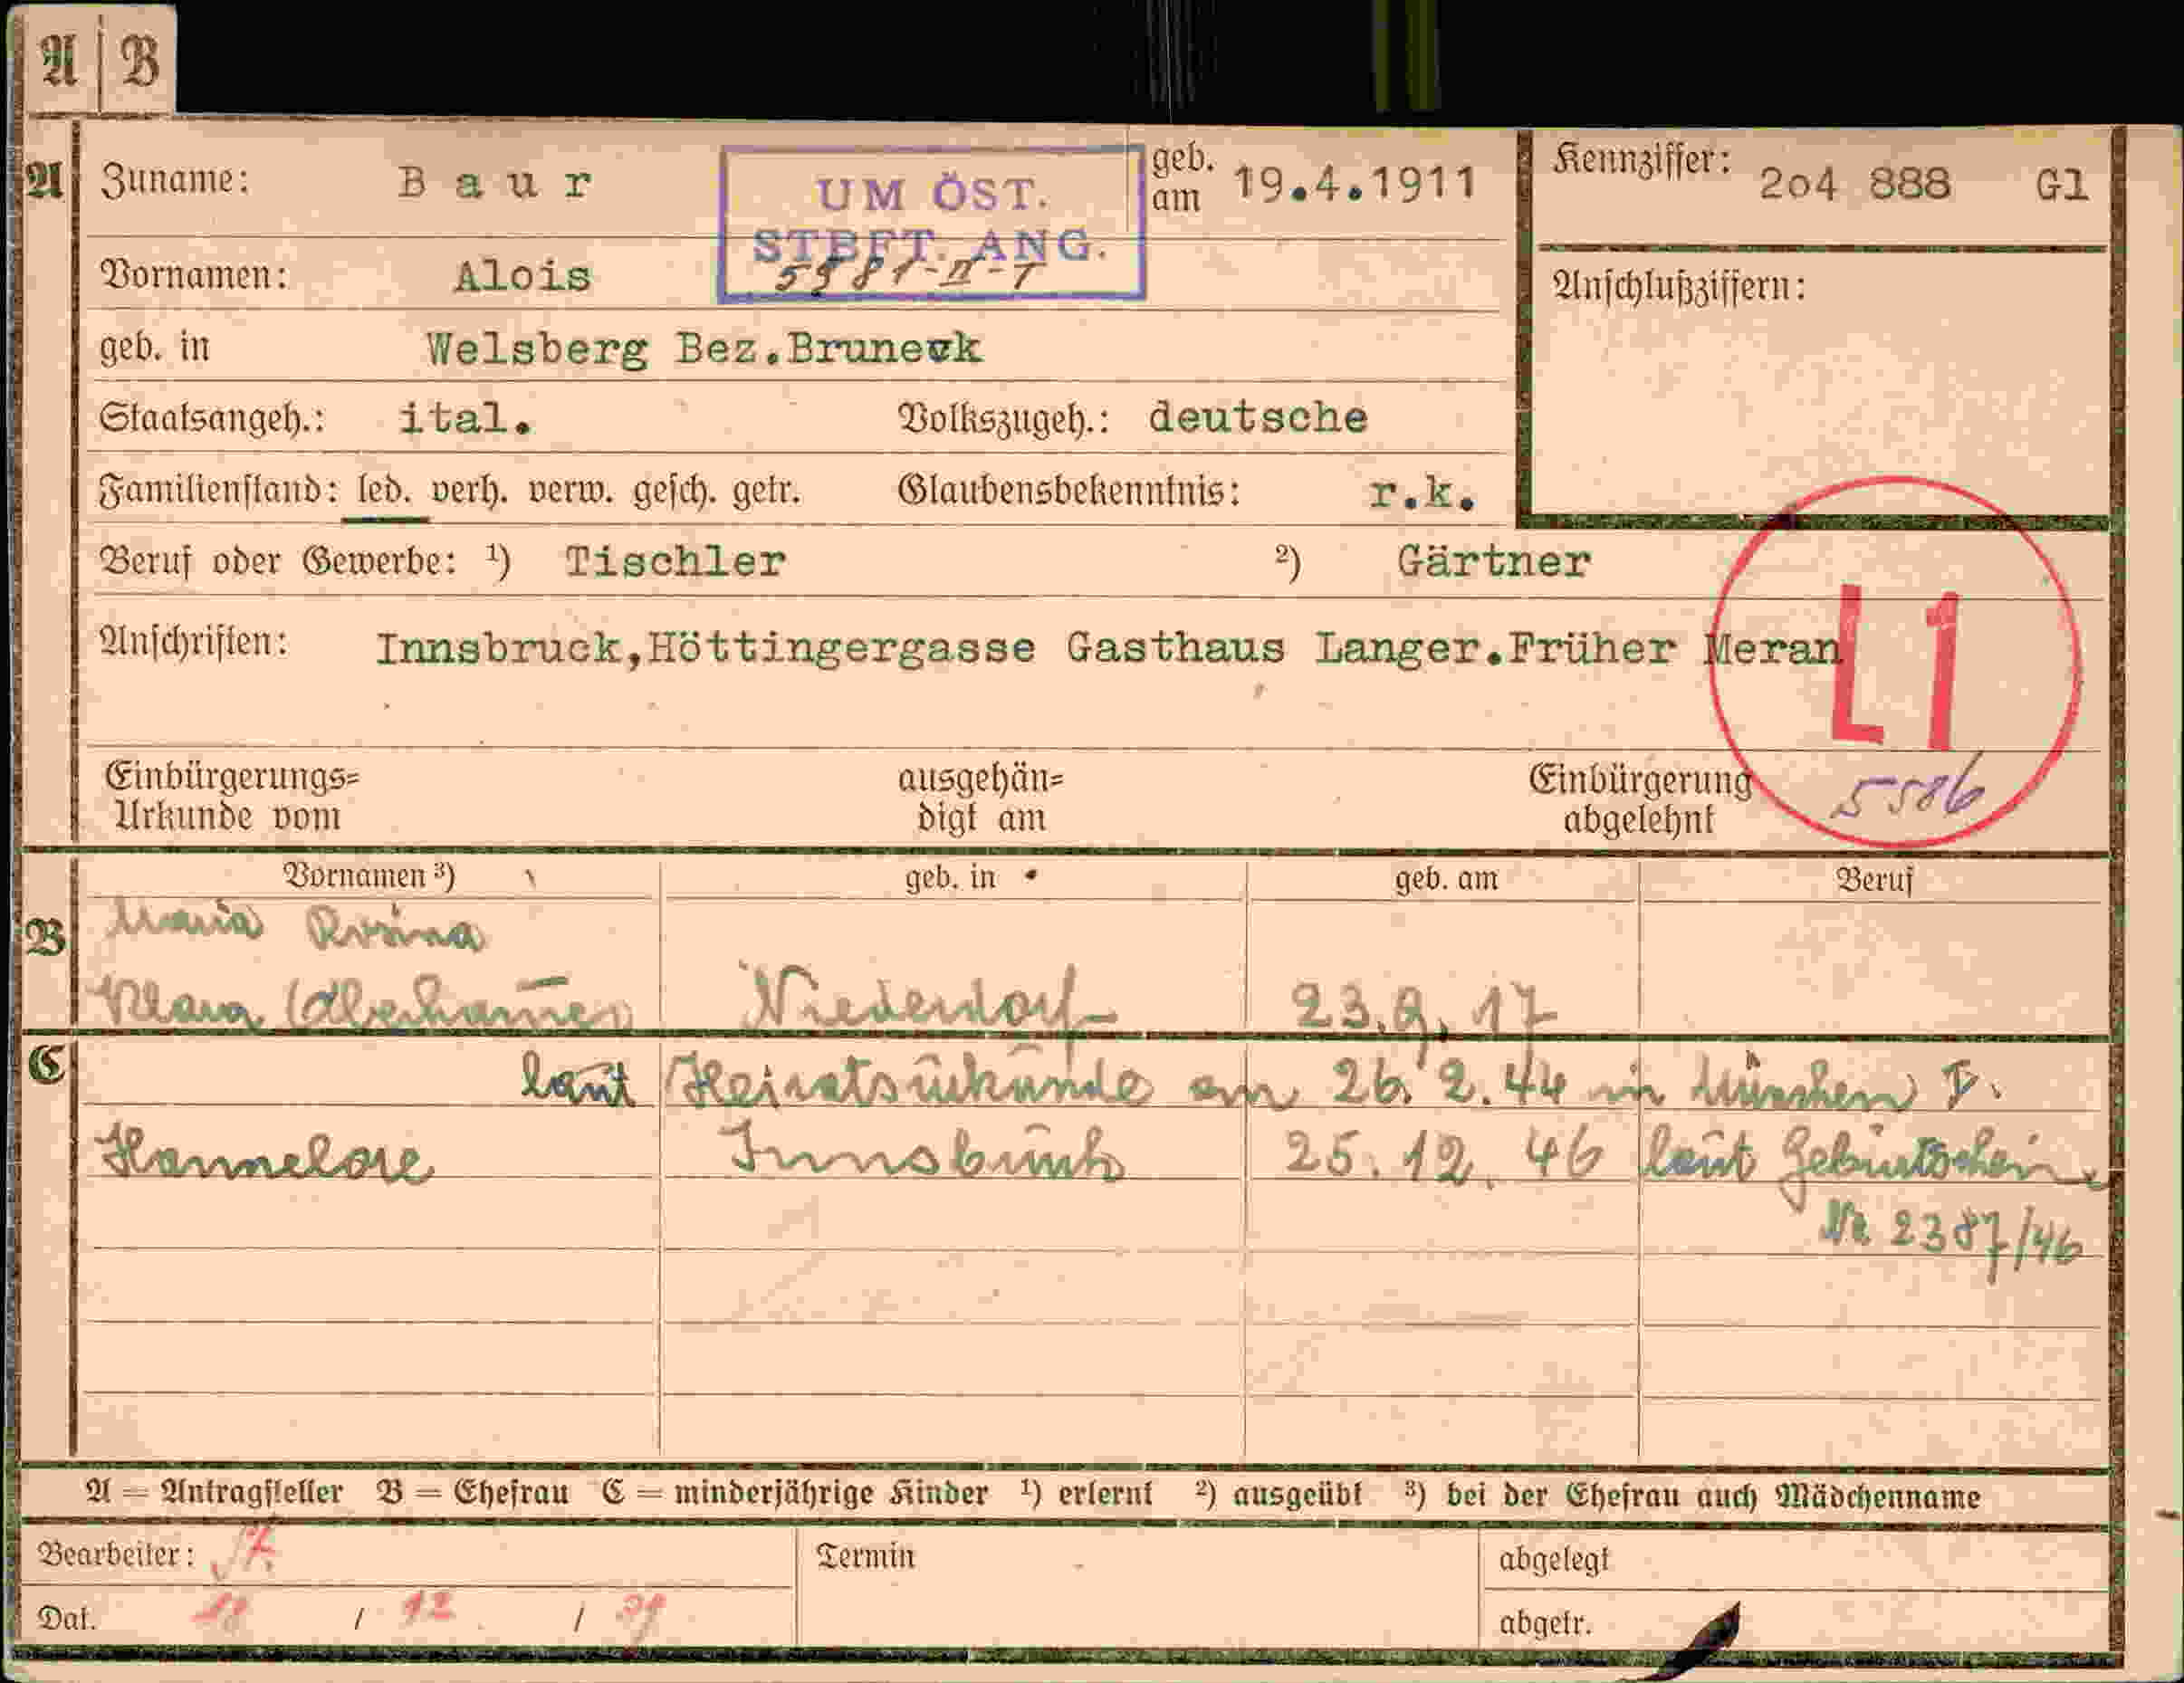 A B
A Zuname: Baur UM ÖST. STBFT. ANG. 5981-II-T geb. am 19.4.1911 Kennziffer: 2o4 888 Gl
Vornamen: Alois Anschlußziffern:
geb. in Welsberg Bez.Bruneck
Staatsangeh.: ital. Volkszugeh.: deutsche
Familienstand: led. verh. verw. gesch. getr. Glaubensbekenntnis: r.k.
Beruf oder Gewerbe: ¹) Tischler ²) Gärtner
Anschriften: Innsbruck,Höttingergasse Gasthaus Langer.Früher Meran
L1
Einbürgerungs= ausgehän= Einbürgerung 5586
Urkunde vom digt am abgelehnt
Vornamen ³) geb. in geb. am Beruf
B Maria Rosina
Klara Niederdorf 23.9.17
C laut Heiratsurkunde am 26.2.44 in München
Hannelore Innsbruck 25.12.46 laut Geburtsschein
Nr. 2387/46
A = Antragsteller B = Ehefrau C = minderjährige Kinder ¹) erlernt ²) ausgeübt ³) bei der Ehefrau auch Mädchenname
Bearbeiter: Termin abgelegt
Dat. 18 / 12 / 39 abgetr.